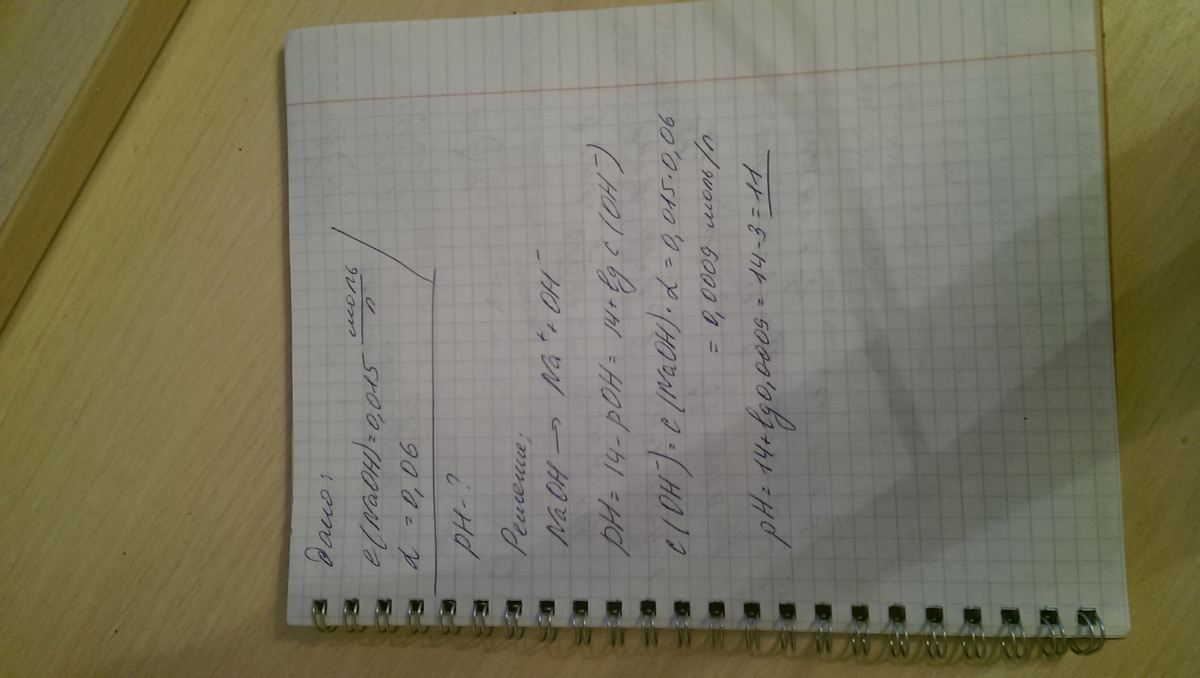 Дано:
c(NaOH)=0,015 моль/л
α = 0,06
pH-?
Решение:
NaOH → Na⁺ + OH⁻
pH = 14 - pOH = 14 + lg c(OH⁻)
c(OH⁻) = c(NaOH)·α = 0,015·0,06
= 0,0009 моль/л
pH = 14 + lg0,0009 = 14-3 = 11